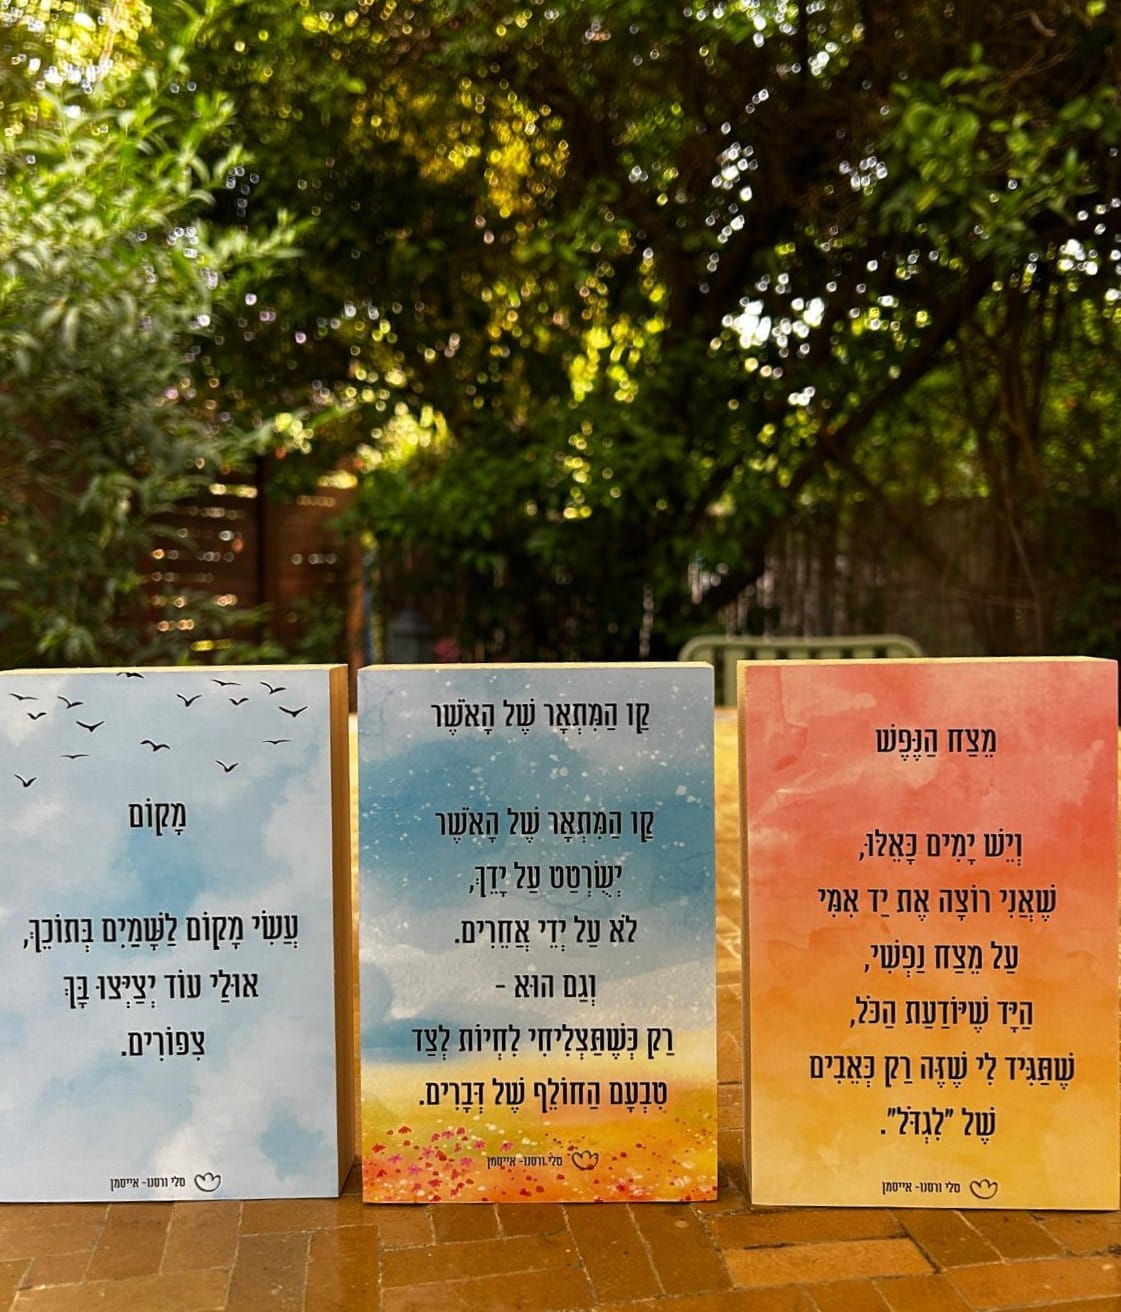 מָקוֹם
עֲשִׂי מָקוֹם לַשָּׁמַיִם בְּתוֹכֵךְ,
אוּלַי עוֹד יְצַיְּצוּ בָּךְ
צִפּוֹרִים.
סלי ורסנו- אייסמן
קַו הַמִּתְאָר שֶׁל הָאֹשֶׁר
קַו הַמִּתְאָר שֶׁל הָאֹשֶׁר
יְשֻׂרְטַט עַל יָדֵךְ,
לֹא עַל יְדֵי אֲחֵרִים.
וְגַם הוּא -
רַק כְּשֶׁתַּצְלִיחִי לִחְיוֹת לְצַד
טִבְעָם הַחוֹלֵף שֶׁל דְּבָרִים.
סלי ורסנו- אייסמן
מֵצַח הַנֶּפֶשׁ
וְיֵשׁ יָמִים כָּאֵלּוּ,
שֶׁאֲנִי רוֹצָה אֶת יַד אִמִּי
עַל מֵצַח נַפְשִׁי,
הַיָּד שֶׁיּוֹדַעַת הַכֹּל,
שֶׁתַּגִּיד לִי שֶׁזֶּה רַק כְּאֵבִים
שֶׁל "לִגְדֹּל".
סלי ורסנו- אייסמן